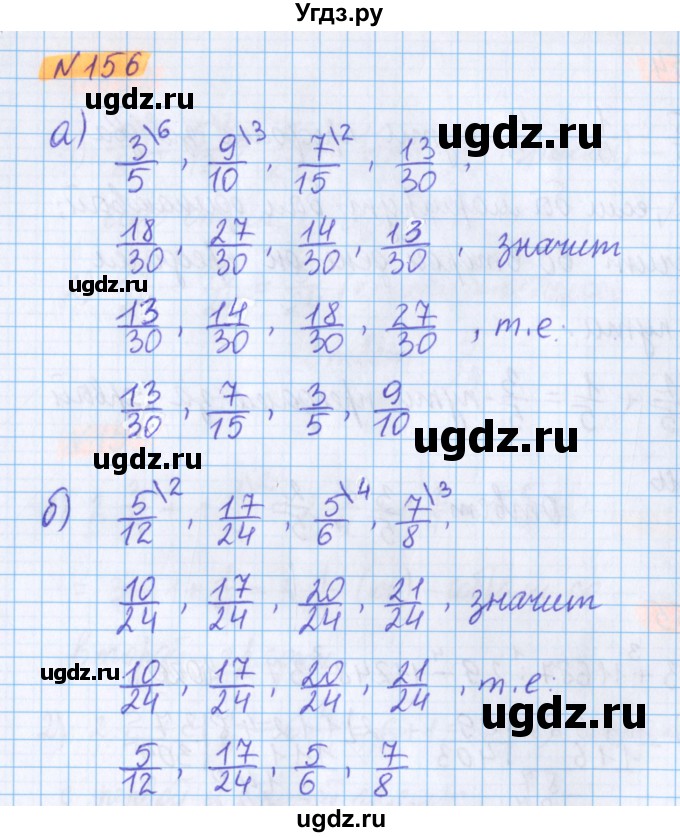 Угдз.ру
N156
ugdz.ru
ugdz.ru
а) 3/5 \6, 9/10 \3, 7/15 \2, 13/30,
18/30, 27/30, 14/30, 13/30, значит
ugdz.ru
13/30, 14/30, 18/30, 27/30, т.е.:
13/30, 7/15, 3/5, 9/10
ugdz.ru
ugdz.ru
б) 5/12 \2, 17/24, 5/6 \4, 7/8 \3,
10/24, 17/24, 20/24, 21/24, значит
ugdz.ru
10/24, 17/24, 20/24, 21/24, т.е.
ugdz.ru
5/12, 17/24, 5/6, 7/8
ugdz.ru